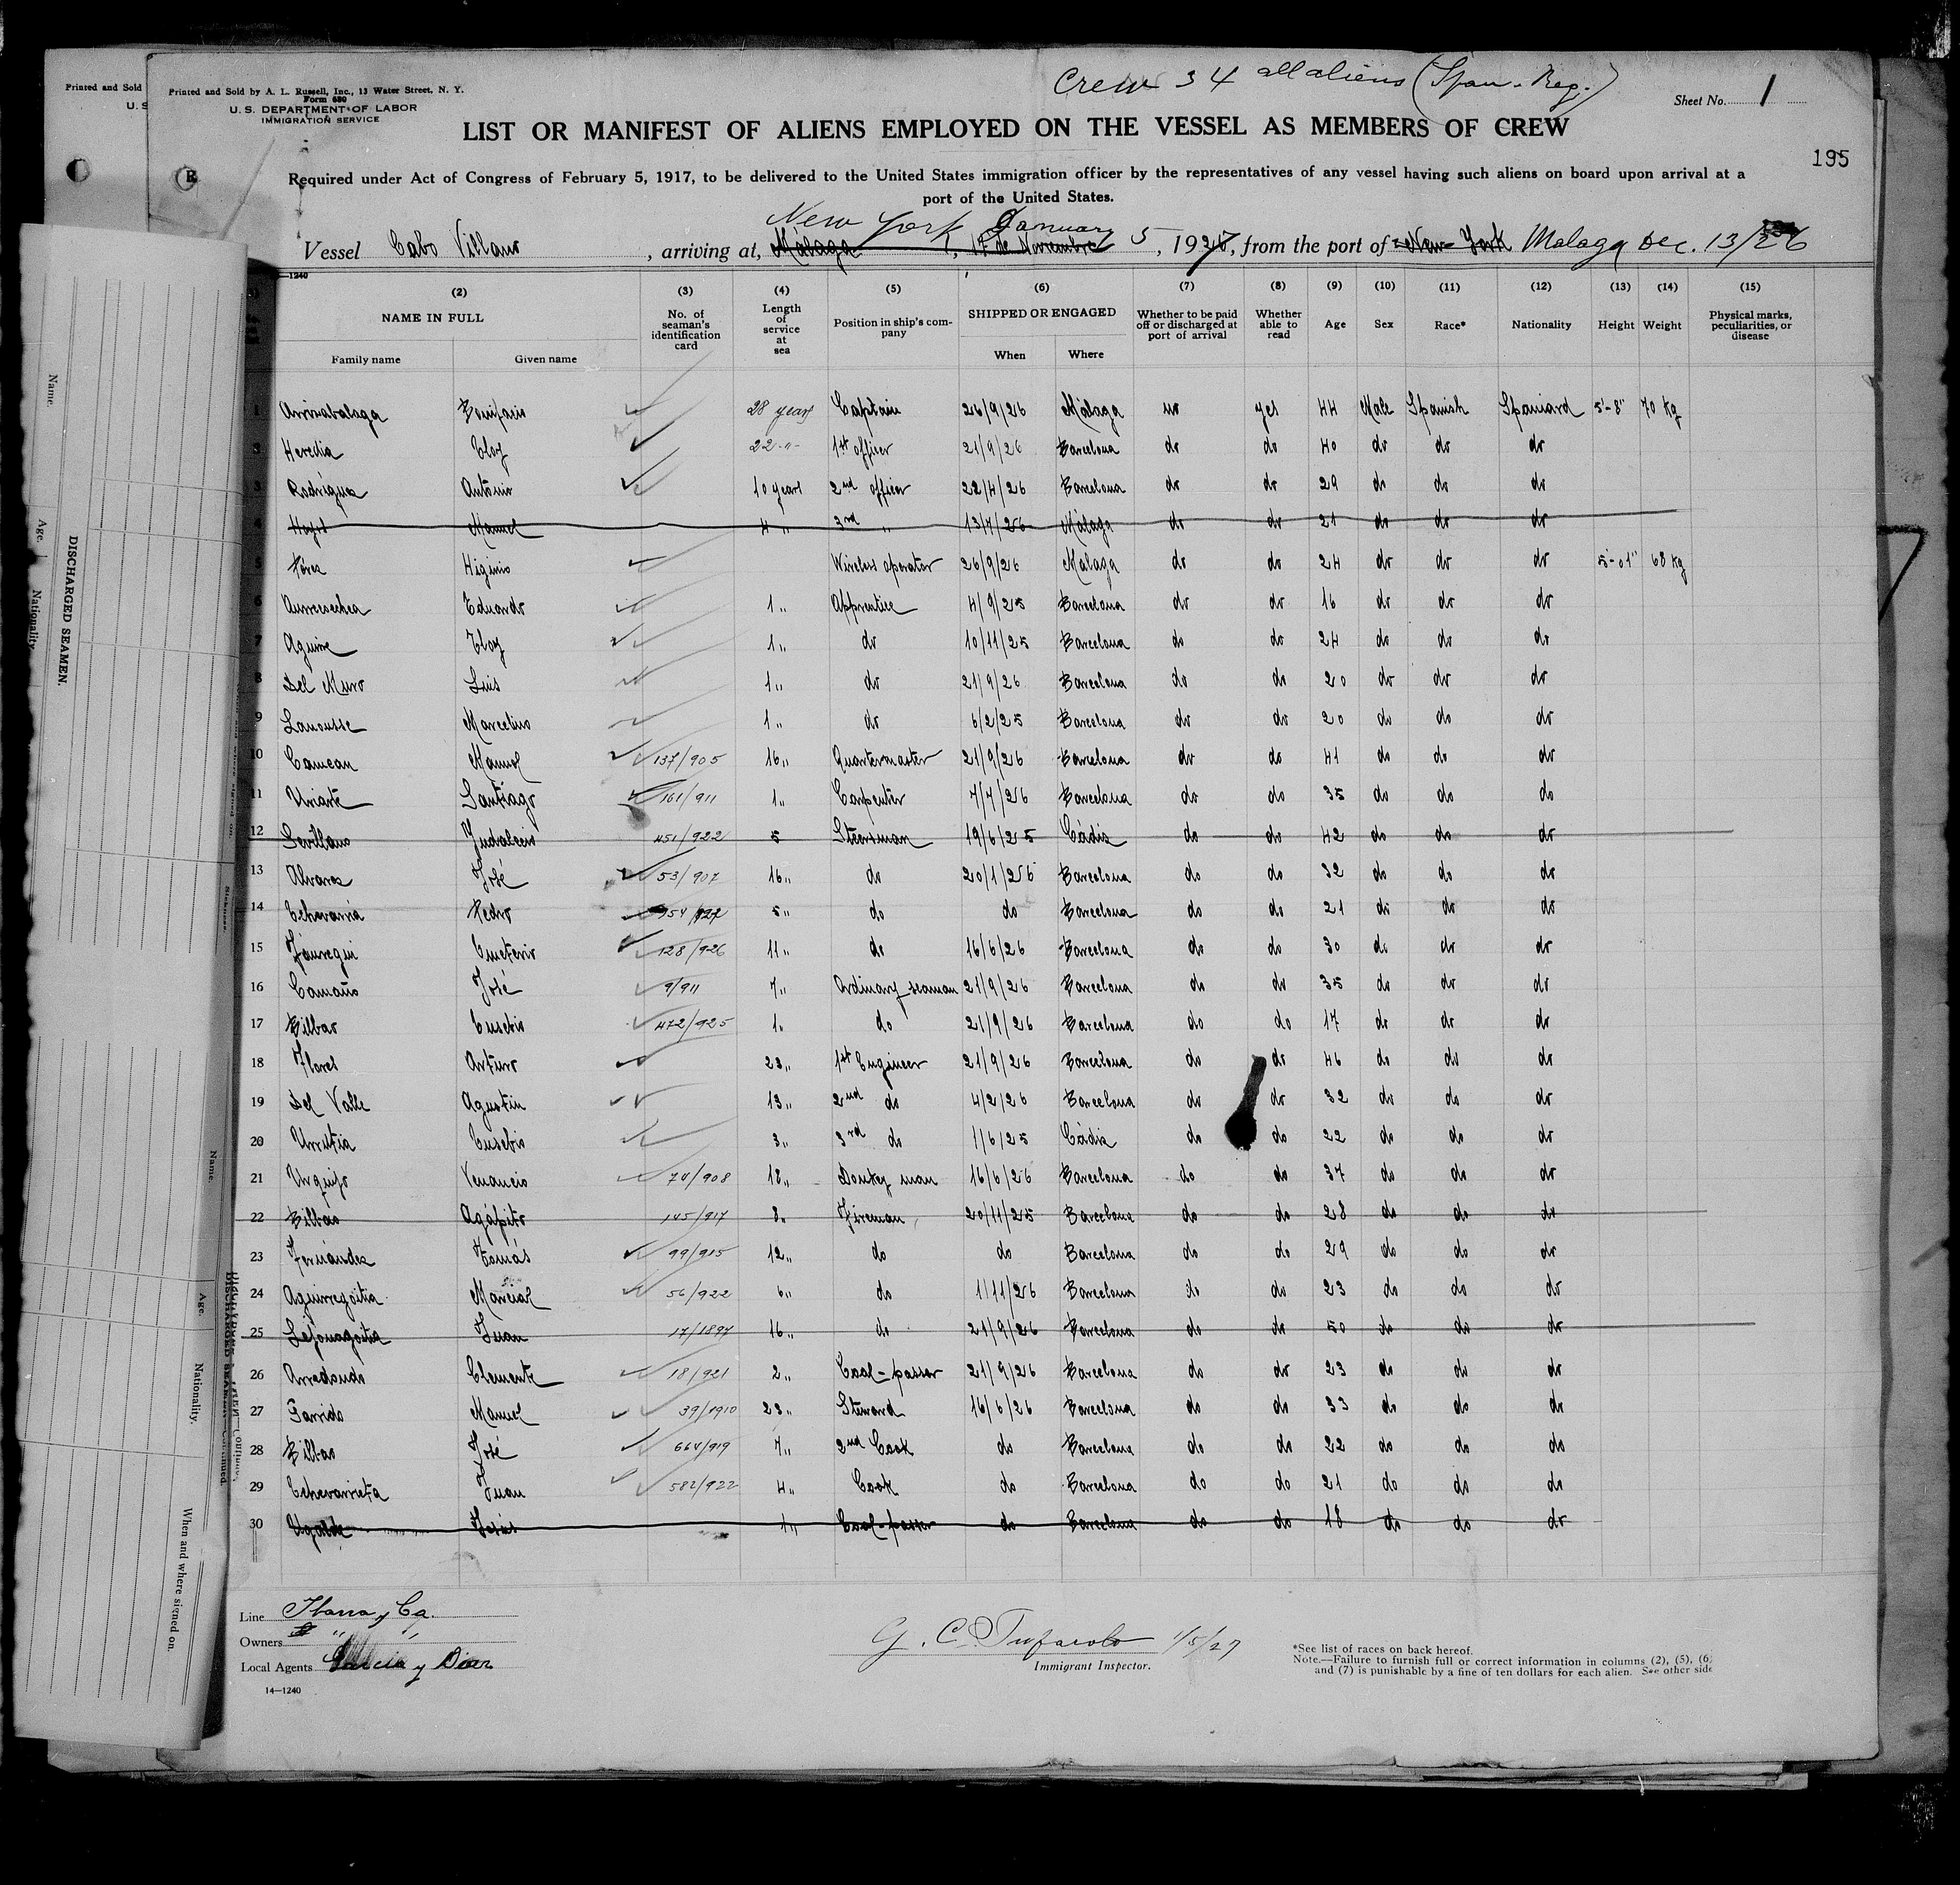 Crew 34 all aliens (Span. Reg.)
Printed and Sold
U. S
Printed and Sold by A. L. Russell, Inc., 13 Water Street, N. Y.
Form 680
U. S. DEPARTMENT OF LABOR
IMMIGRATION SERVICE
Sheet No. 1
LIST OR MANIFEST OF ALIENS EMPLOYED ON THE VESSEL AS MEMBERS OF CREW
195
Required under Act of Congress of February 5, 1917, to be delivered to the United States immigration officer by the representatives of any vessel having such aliens on board upon arrival at a
port of the United States.
New York January
Vessel Cabo Villano, arriving at, Málaga, 17 de Novembre 5, 1927, from the port of New York Malaga Dec. 13/26
1240
(2) (3) (4) (5) (6) (7) (8) (9) (10) (11) (12) (13) (14) (15)
NAME IN FULL No. of seaman's identification card Length of service at sea Position in ship's company SHIPPED OR ENGAGED Whether to be paid off or discharged at port of arrival Whether able to read Age Sex Race* Nationality Height Weight Physical marks, peculiarities, or disease
Family name Given name When Where
1 Arrinabalaga Bonifacio 28 years Captain 26/9/26 Málaga no yes 44 Male Spanish Spaniard 5'-8" 70 Kg
2 Heredia Eloy 22 -"- 1st officer 21/9/26 Barcelona do do 40 do do do
3 Rodriguez Antonio 10 years 2nd officer 22/4/26 Barcelona do do 29 do do do
4 Manuel 4 " 3rd " 13/7/26 Málaga do do 21 do do do
5 Pérez Higinio Wireless operator 26/9/26 Málaga do do 24 do do do 5'-01" 68 Kg
6 Aurrecoechea Eduardo 1 " Apprentice 4/9/25 Barcelona do do 16 do do do
7 Aguirre Eloy 1 " do 10/11/25 Barcelona do do 24 do do do
8 del Muro Luis 1 " do 21/9/26 Barcelona do do 20 do do do
9 Lanousse Marcelino 1 " do 6/2/25 Barcelona do do 20 do do do
10 Camean Manuel 137/905 16 " Quartermaster 21/9/26 Barcelona do do 41 do do do
11 Uriarte Santiago 161/911 1 " Carpenter 7/7/26 Barcelona do do 35 do do do
12 Sevillano Indalecio 451/922 5 Steersman 19/6/25 Cádiz do do 42 do do do
13 Alvarez José 53/907 16 " do 20/1/26 Barcelona do do 32 do do do
14 Echevarria Pedro 954/ 5 " do do Barcelona do do 21 do do do
15 Jáuregui Emeterio 128/926 11 " do 16/6/26 Barcelona do do 30 do do do
16 Camaño José 9/911 7 " Ordinary seaman 21/9/26 Barcelona do do 35 do do do
17 Bilbao Eusebio 472/925 1 " do 21/9/26 Barcelona do do 17 do do do
18 Flores Arturo 23 " 1st Engineer 21/9/26 Barcelona do do 46 do do do
19 del Valle Agustin 13 " 2nd do 4/2/26 Barcelona do do 32 do do do
20 Urrutia Eusebio 3 " 3rd do 1/6/25 Cádiz do do 22 do do do
21 Urquijo Venancio 74/908 18 " Donkey man 16/6/26 Barcelona do do 37 do do do
22 Bilbao Agápito 145/917 8 " Fireman 20/11/25 Barcelona do do 28 do do do
23 Fernández Tomás 99/915 12 " do do Barcelona do do 29 do do do
24 Aguirregoitia Marcial 56/922 6 " do 1/11/26 Barcelona do do 23 do do do
25 Lejonagoitia Juan 17/1897 16 " do 21/9/26 Barcelona do do 50 do do do
26 Arredondo Clemente 18/921 2 " Coal-passer 21/9/26 Barcelona do do 23 do do do
27 Garrido Manuel 39/1910 23 " Steward 16/6/26 Barcelona do do 33 do do do
28 Bilbao José 664/919 7 " 2nd Cook do Barcelona do do 22 do do do
29 Echevarrieta Juan 582/922 4 " Cook do Barcelona do do 21 do do do
30 Ugalde Jesús 1 " Coal-passer do Barcelona do do 18 do do do
Line Ibarra y Ca.
Owners " "
Local Agents Garcia y Diaz
14—1240
G. C. Tufarolo 1/5/27
Immigrant Inspector.
*See list of races on back hereof.
Note.—Failure to furnish full or correct information in columns (2), (5), (6)
and (7) is punishable by a fine of ten dollars for each alien. See other side
Name.
Age.
Nationality.
DISCHARGED SEAMEN.
Name.
Age.
Nationality.
When and where signed on.